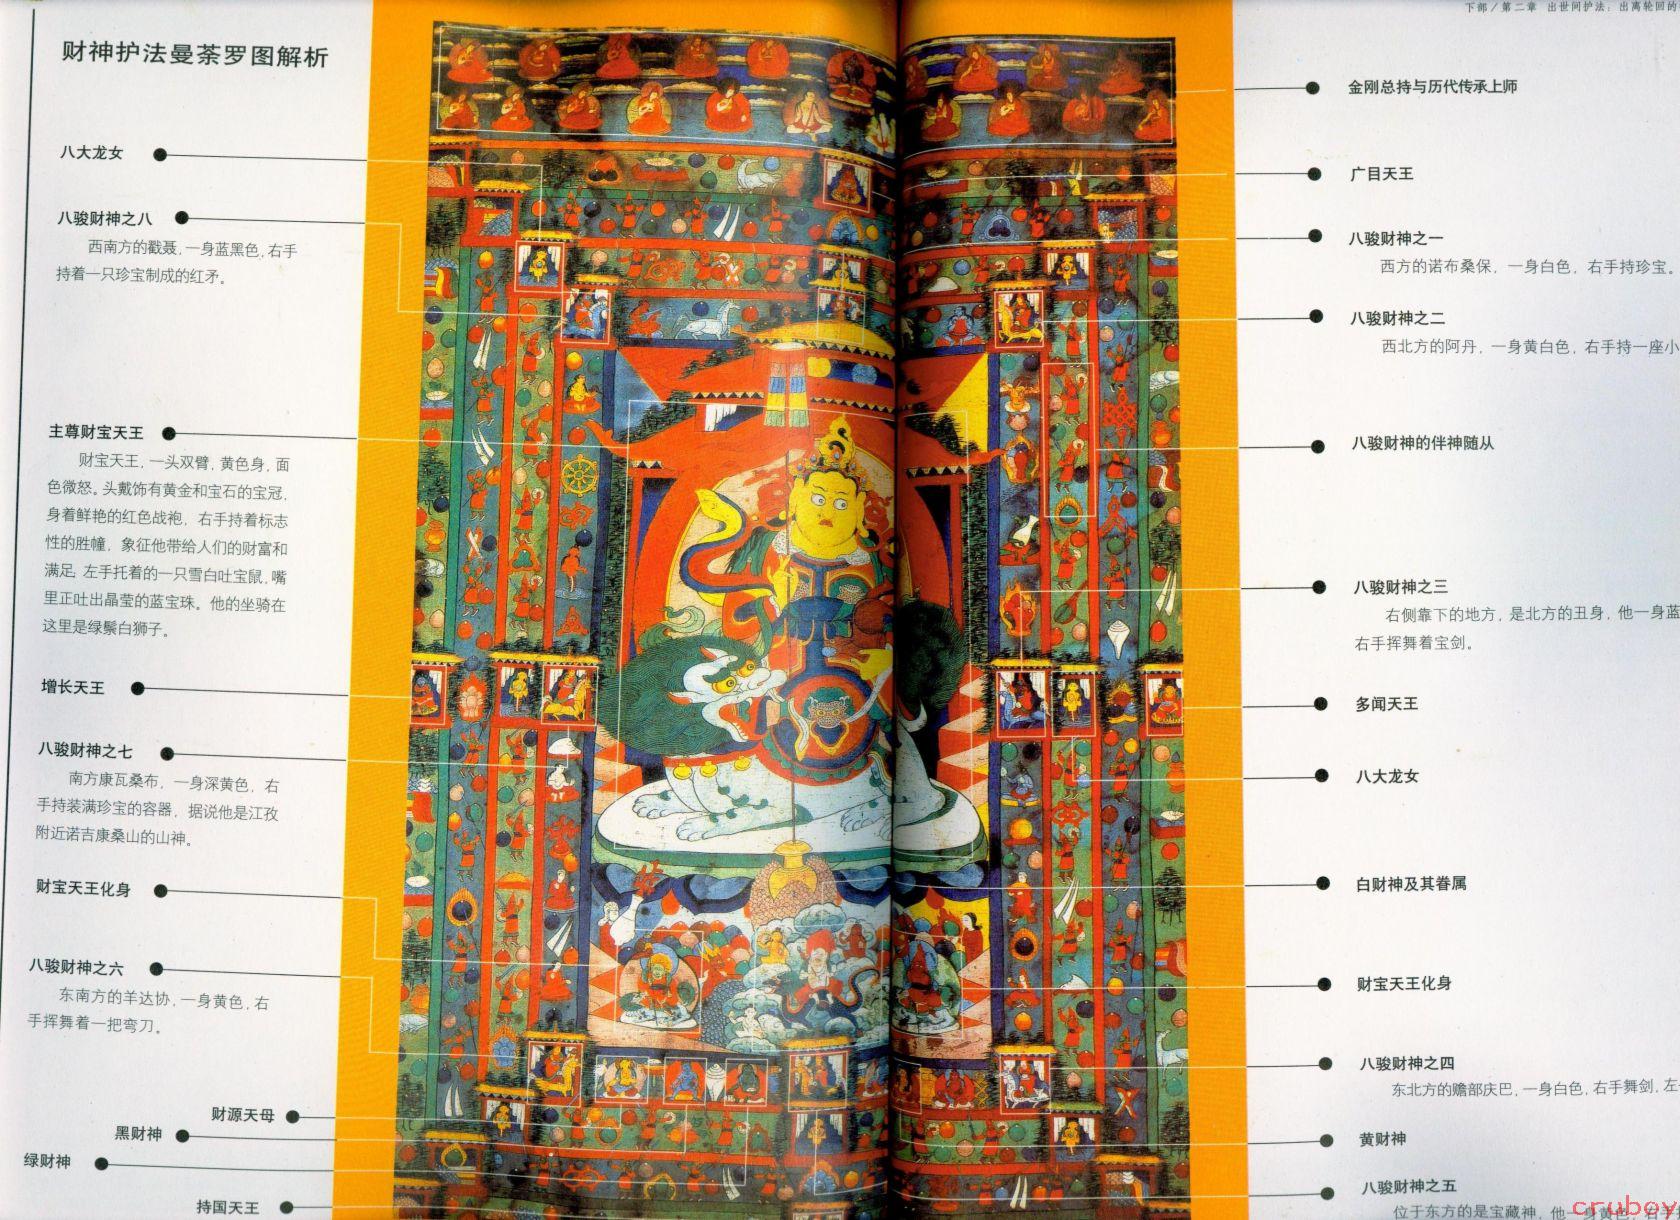 下部／第二章 出世间护法：出离轮回的
财神护法曼荼罗图解析
八大龙女
八骏财神之八
西南方的戳聂，一身蓝黑色，右手
持着一只珍宝制成的红矛。
主尊财宝天王
财宝天王，一头双臂，黄色身，面
色微怒。头戴饰有黄金和宝石的宝冠，
身着鲜艳的红色战袍，右手持着标志
性的胜幢，象征他带给人们的财富和
满足，左手托着的一只雪白吐宝鼠，嘴
里正吐出晶莹的蓝宝珠。他的坐骑在
这里是绿鬃白狮子。
增长天王
八骏财神之七
南方康瓦桑布，一身深黄色，右
手持装满珍宝的容器，据说他是江孜
附近诺吉康桑山的山神。
财宝天王化身
八骏财神之六
东南方的羊达协，一身黄色，右
手挥舞着一把弯刀。
财源天母
黑财神
绿财神
持国天王
金刚总持与历代传承上师
广目天王
八骏财神之一
西方的诺布桑保，一身白色，右手持珍宝。
八骏财神之二
西北方的阿丹，一身黄白色，右手持一座小
八骏财神的伴神随从
八骏财神之三
右侧靠下的地方，是北方的丑身，他一身蓝
右手挥舞着宝剑。
多闻天王
八大龙女
白财神及其眷属
财宝天王化身
八骏财神之四
东北方的赡部庆巴，一身白色，右手舞剑，左
黄财神
八骏财神之五
位于东方的是宝藏神，他一身黄色，右手
cruboy